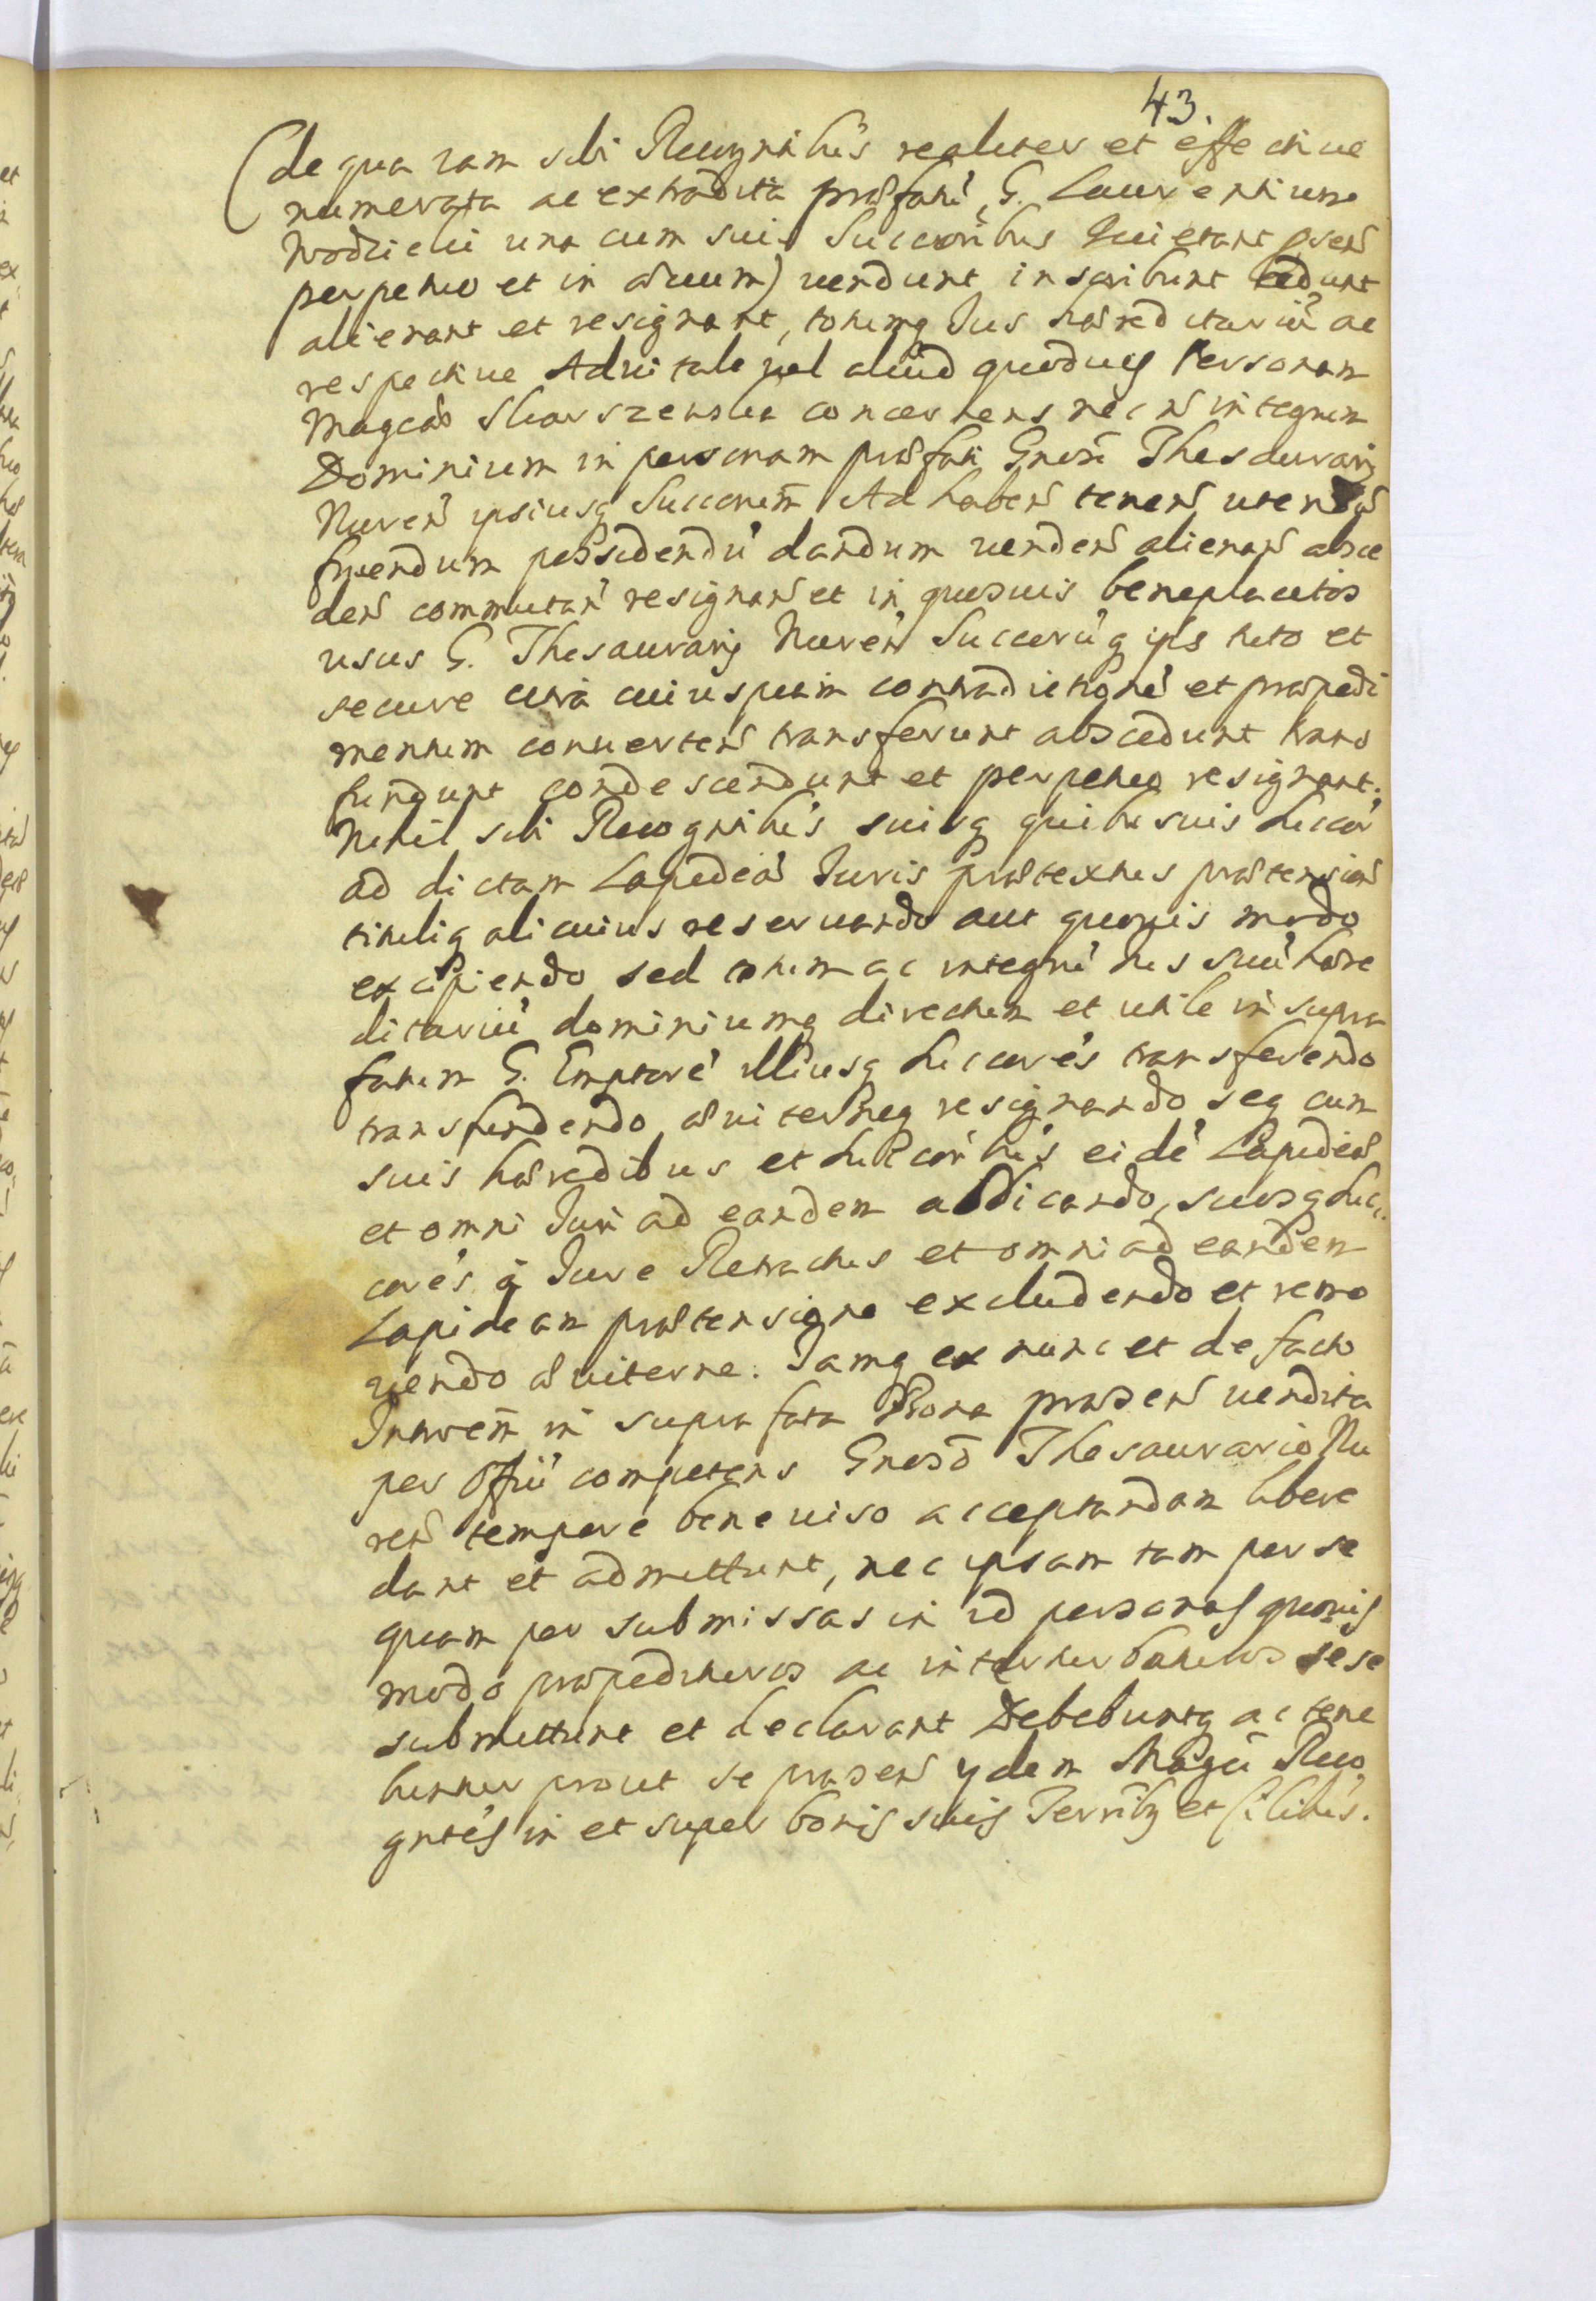 43.
(de qua iam sibi Recognitibus realiter et effective
numerata ac extradita præfatu G. Laurentium
Wodzicki una cum suis Succoribus Quietant præsen
perpetuo et in ævum) vendunt inscribunt cedunt
alienant et resignant, totumq Ius hæreditariu ac
respective Advitale vel aliud quodvis Personam
Magcæ Skarszewska concernens nec n integrum
Dominium in personam præfati Gnosi Thesaurarij
Nuren ipsiusq Succorum Ad haben tenen uten
fruendum possidendu dandum venden alienan absce
den commutan resignan et in quosvis beneplacitos
usus G. Thesaurarij Nuren Succoruq ips tuto et
secure citra cuiuspiam contradictione et præpedi
mentum converten transferunt abscedunt trans
fundunt condescendunt et perpetuo resignant.
Nihil sibi Recognitibus suisq quibusvis Succor
ad dictam Lapideã Iuris prætextus prætension
tituliq alicuius reservando aut quovis modo
excipiendo sed totum ac integru Ius suu hære
ditariu dominiumq directum et utile in supra
fatum G. Emptore illiusq Succores transferendo
transfundendo æviterneq resignando seq cum
suis hæredibus et Succoribus eide Lapideæ
et omni Iuri ad eandem abdicando, suosq Suc
cores a Iure Retractus et omni ad eandem
Lapideam prætensione excludendo et remo
vendo æviterne. Iamq ex nunc et de facto
Intrõem in suprafata Bona præsen vendita
per Offiu competens Gnoso Thesaurario Nu
ren tempore bene viso acceptandam libere
dant et admittunt, nec ipsam tam per se
quam per submissas in id personas quovis
modo præpedituros ac interturbaturos sese
submittunt et declarant Debebuntq ac tene
buntur prout se præsen ydem Magci Reco
gntes in et super bonis suis Terribq et